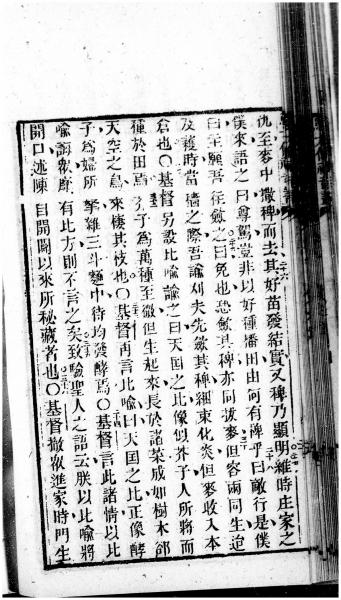 仇至麥中撒稗而去其好苗發結實又稗乃顯明維時庄家之
僕來語之曰尊駕豈非以好種播田由何有稗乎曰敵行是僕
曰主願吾往斂之曰免也恐斂其稗亦同拔麥但容兩同生迨
及穫時當穡之際吾諭刈夫先斂其稗綑束化炎但麥收入本
倉也〇基督另設比喻諭之曰天國之比像似芥子人所將而
種於田焉夫子為萬種至微但生起來長於諸菜成如樹木郤
天空之鳥來棲其枝也〇基督再言比喻曰天國之比正像酵
子為婦所挐雜三斗麵中待均發酵焉〇基督言此諸情以比
喻訓眾靡有比方則不言之矣致驗聖人之語云朕以比喻將
開口述陳自開闢以來所秘藏者也〇基督撇眾進家時門生